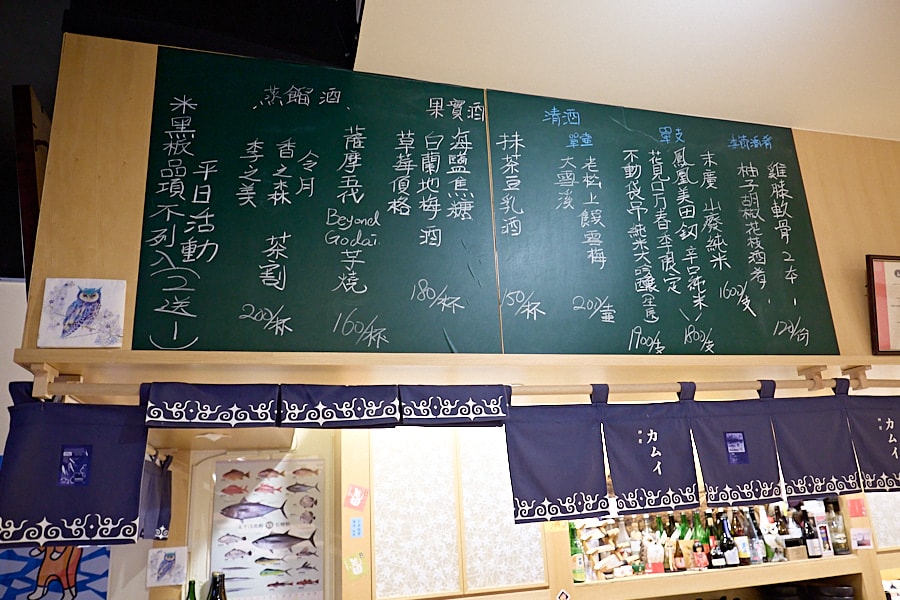 雞膝軟骨 2本
120/份
柚子胡椒花枝酒肴
末廣 山廢純米
1600/支
鳳凰美田 剱 辛口純米
1800/支
花見日月春季限定
不動袋吊純米大吟釀
1900/支
單支
清酒
單壺
老松上餵雪梅
大雪渓
200/壺
抹茶豆乳酒
150/杯
果實酒
海鹽焦糖
白蘭地梅酒
草莓優格
180/杯
蒸餾酒
薩摩五代
Beyond
Godai
芋燒
160/杯
令月
香之森
李之美
茶割
200/杯
平日活動
※黑板品項不列入(二送一)
カムイ
カムイ